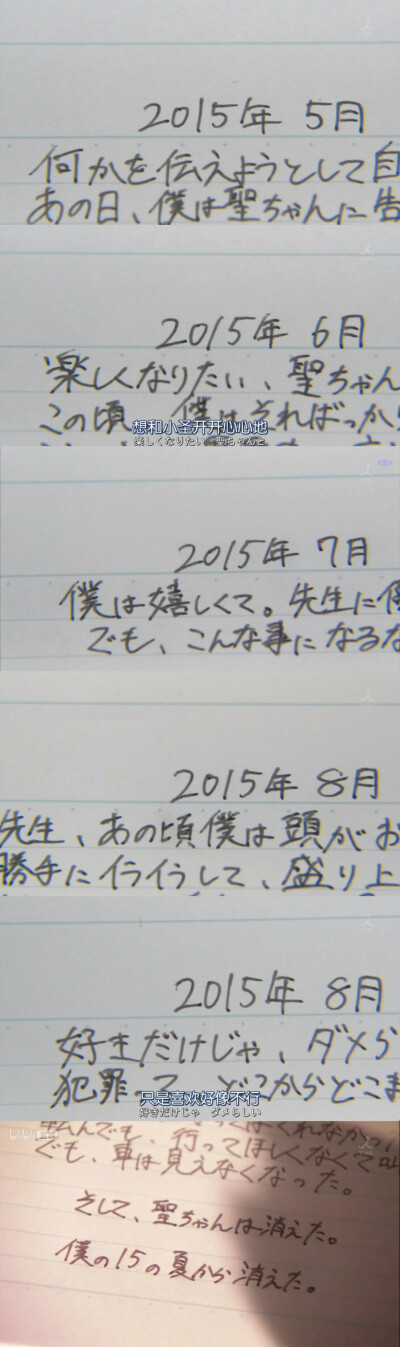 2015年 5月
何かを伝えようとして自
あの日、僕は聖ちゃんに告
2015年 6月
楽しくなりたい、聖ちゃん
この頃、僕はそればっか
想和小圣开开心心地
楽しくなりたい 聖ちゃんと
2015年 7月
僕は嬉しくて。先生に
でも、こんな事になるな
2015年 8月
先生、あの頃僕は頭がお
勝手にイライラして、盛り上
2015年 8月
好きだけじゃ、ダメら
犯罪って、どこからどこま
只是喜欢好像不行
好きだけじゃ ダメらしい
でも、行ってほしくなくて
でも、車は見えなくなった。
そして、聖ちゃんは消えた。
僕の15の夏から消えた。